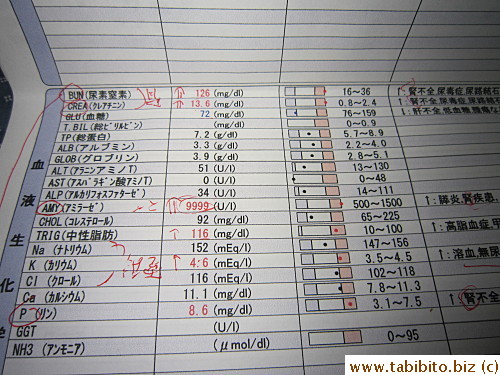 BUN (尿素窒素) ↑↑ 126 (mg/dl) 16~36 ↑: 腎不全,尿毒症,尿路結石
CREA(クレアチニン) ↑↑ 13.6 (mg/dl) 0.8~2.4 ↑: 腎不全,尿毒症,尿路
GLU(血糖) 72 (mg/dl) 76~159 ↓: 肝不全,低血糖
T.BIL(総ビリルビン) (mg/dl) 0~0.9
TP(総蛋白) 7.2 (g/dl) 5.7~8.9
ALB(アルブミン) 3.3 (g/dl) 2.2~4.0
GLOB(グロブリン) 3.9 (g/dl) 2.8~5.1
ALT(アラニンアミノT) 51 (U/l) 13~130
AST(アスパラギン酸アミノT) 0 (U/l) 0~48
ALP(アルカリフォスファターゼ) 34 (U/l) 14~111
AMY(アミラーゼ) ↑↑ 9999 (U/l) 500~1500 ↑: 膵炎,腎疾
CHOL(コレステロール) 92 (mg/dl) 65~225
TRIG(中性脂肪) ↑ 116 (mg/dl) 10~100 ↑: 高脂血症
Na (ナトリウム) 152 (mEq/l) 147~156
K (カリウム) ↑ 4.6 (mEq/l) 3.5~4.5 ↑: 溶血,無尿
Cl (クロール) 116 (mEq/l) 102~118
Ca (カルシウム) 11.1 (mg/dl) 7.8~11.3
P (リン) 8.6 (mg/dl) 3.1~7.5 ↑: 腎不全
GGT (U/l)
NH3 (アンモニア) (μmol/dl) 0~95
血液生化学
www.tabibito.biz (c)